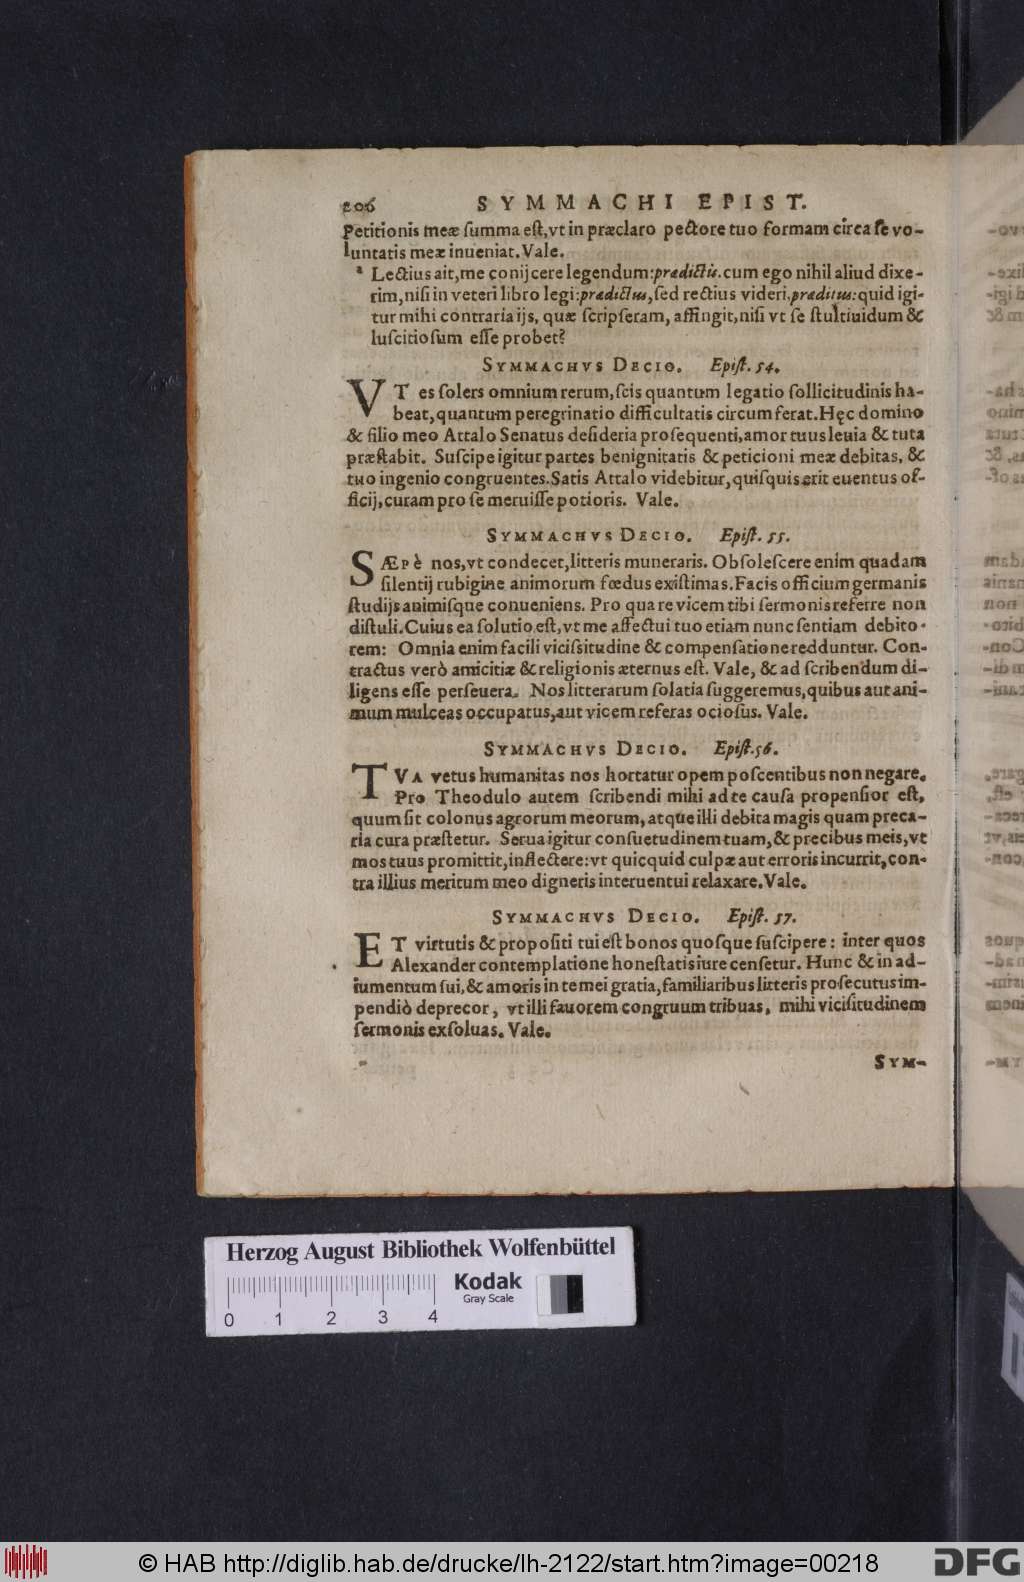 206 SYMMACHI EPIST.
Petitionis meæ ſumma eſt,vt in præclaro pectore tuo formam circa ſe vo-
luntatis meæ inueniat. Vale.
ª Lectius ait,me conijcere legendum:prædictis.cum ego nihil aliud dixe-
rim,niſi in veteri libro legi:prædictus,ſed rectius videri,præditus:quid igi-
tur mihi contraria ijs, quæ ſcripſeram, affingit,niſi vt ſe ſtultiuidum &
luſcitioſum eſſe probet?
SYMMACHVS DECIO. Epiſt. 54.
VT es ſolers omnium rerum,ſcis quantum legatio ſollicitudinis ha-
beat,quantum peregrinatio difficultatis circumferat.Hęc domino
& filio meo Attalo Senatus deſideria proſequenti,amor tuus leuia & tuta
præſtabit. Suſcipe igitur partes benignitatis & peticioni meæ debitas, &
tuo ingenio congruentes.Satis Attalo videbitur,quiſquis erit euentus of-
ficij,curam pro ſe meruiſſe potioris. Vale.
SYMMACHVS DECIO. Epiſt. 55.
SÆPè nos,vt condecet,litteris muneraris. Obſoleſcere enim quadam
ſilentij rubigine animorum fœdus exiſtimas.Facis officium germanis
ſtudijs animiſque conueniens. Pro qua re vicem tibi ſermonis referre non
diſtuli.Cuius ea ſolutio eſt,vt me affectui tuo etiam nunc ſentiam debito-
rem: Omnia enim facili viciſsitudine & compenſatione redduntur. Con-
tractus verò amicitiæ & religionis æternus eſt. Vale, & ad ſcribendum di-
ligens eſſe perſeuera. Nos litterarum ſolatia ſuggeremus,quibus aut ani-
mum mulceas occupatus,aut vicem referas ocioſus. Vale.
SYMMACHVS DECIO. Epiſt.56.
TVA vetus humanitas nos hortatur opem poſcentibus non negare.
Pro Theodulo autem ſcribendi mihi ad te cauſa propenſior eſt,
quum ſit colonus agrorum meorum, atque illi debita magis quam preca-
ria cura præſtetur. Serua igitur conſuetudinem tuam,& precibus meis,vt
mos tuus promittit,inflectere:vt quicquid culpæ aut erroris incurrit,con-
tra illius meritum meo digneris interuentui relaxare.Vale.
SYMMACHVS DECIO. Epiſt. 57.
ET virtutis & propoſiti tui eſt bonos quoſque ſuſcipere: inter quos
Alexander contemplatione honeſtatis iure cenſetur. Hunc & in ad-
iumentum ſui,& amoris in te mei gratia,familiaribus litteris proſecutus im-
pendiò deprecor, vt illi fauorem congruum tribuas, mihi viciſitudinem
ſermonis exſoluas. Vale.
SYM-
Herzog August Bibliothek Wolfenbüttel
Kodak
Gray Scale
0 1 2 3 4
© HAB http://diglib.hab.de/drucke/lh-2122/start.htm?image=00218
DFG